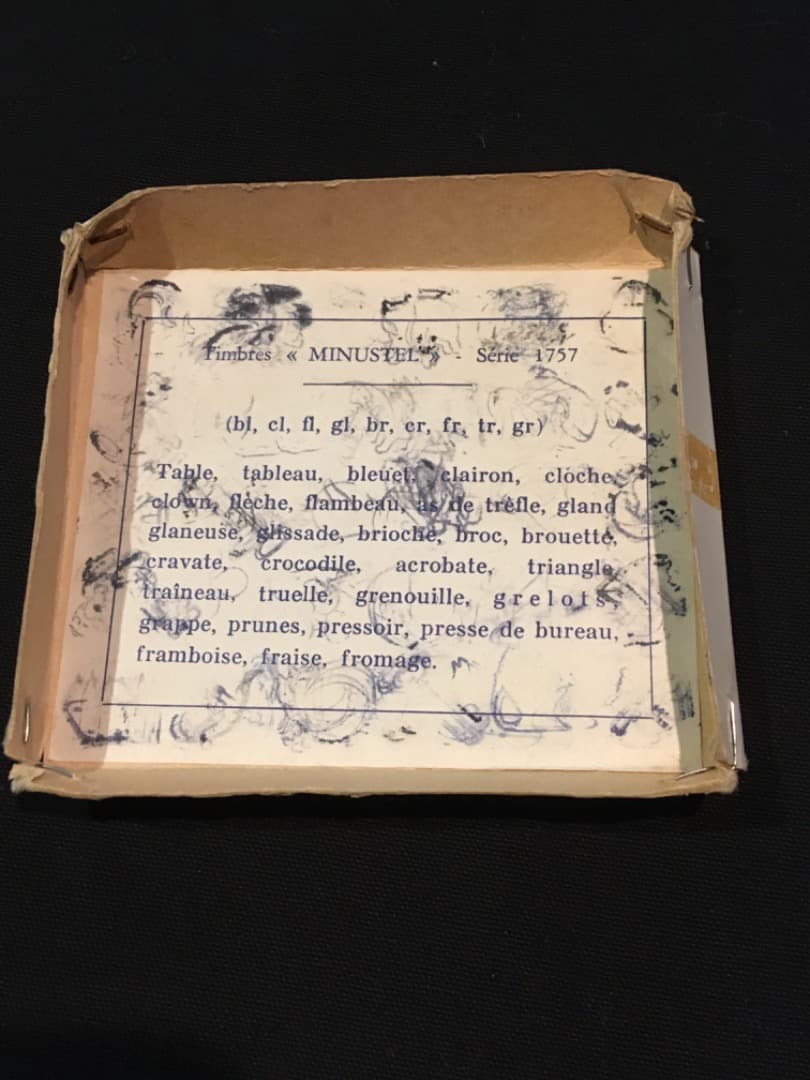 Timbres « MINUSTEL » - Série 1757
(bl, cl, fl, gl, br, cr, fr, tr, gr)
Table, tableau, bleuet, clairon, cloche,
clown, flèche, flambeau, as de trèfle, gland
glaneuse, glissade, brioche, broc, brouette,
cravate, crocodile, acrobate, triangle,
traîneau, truelle, grenouille, grelots,
grappe, prunes, pressoir, presse de bureau,
framboise, fraise, fromage.